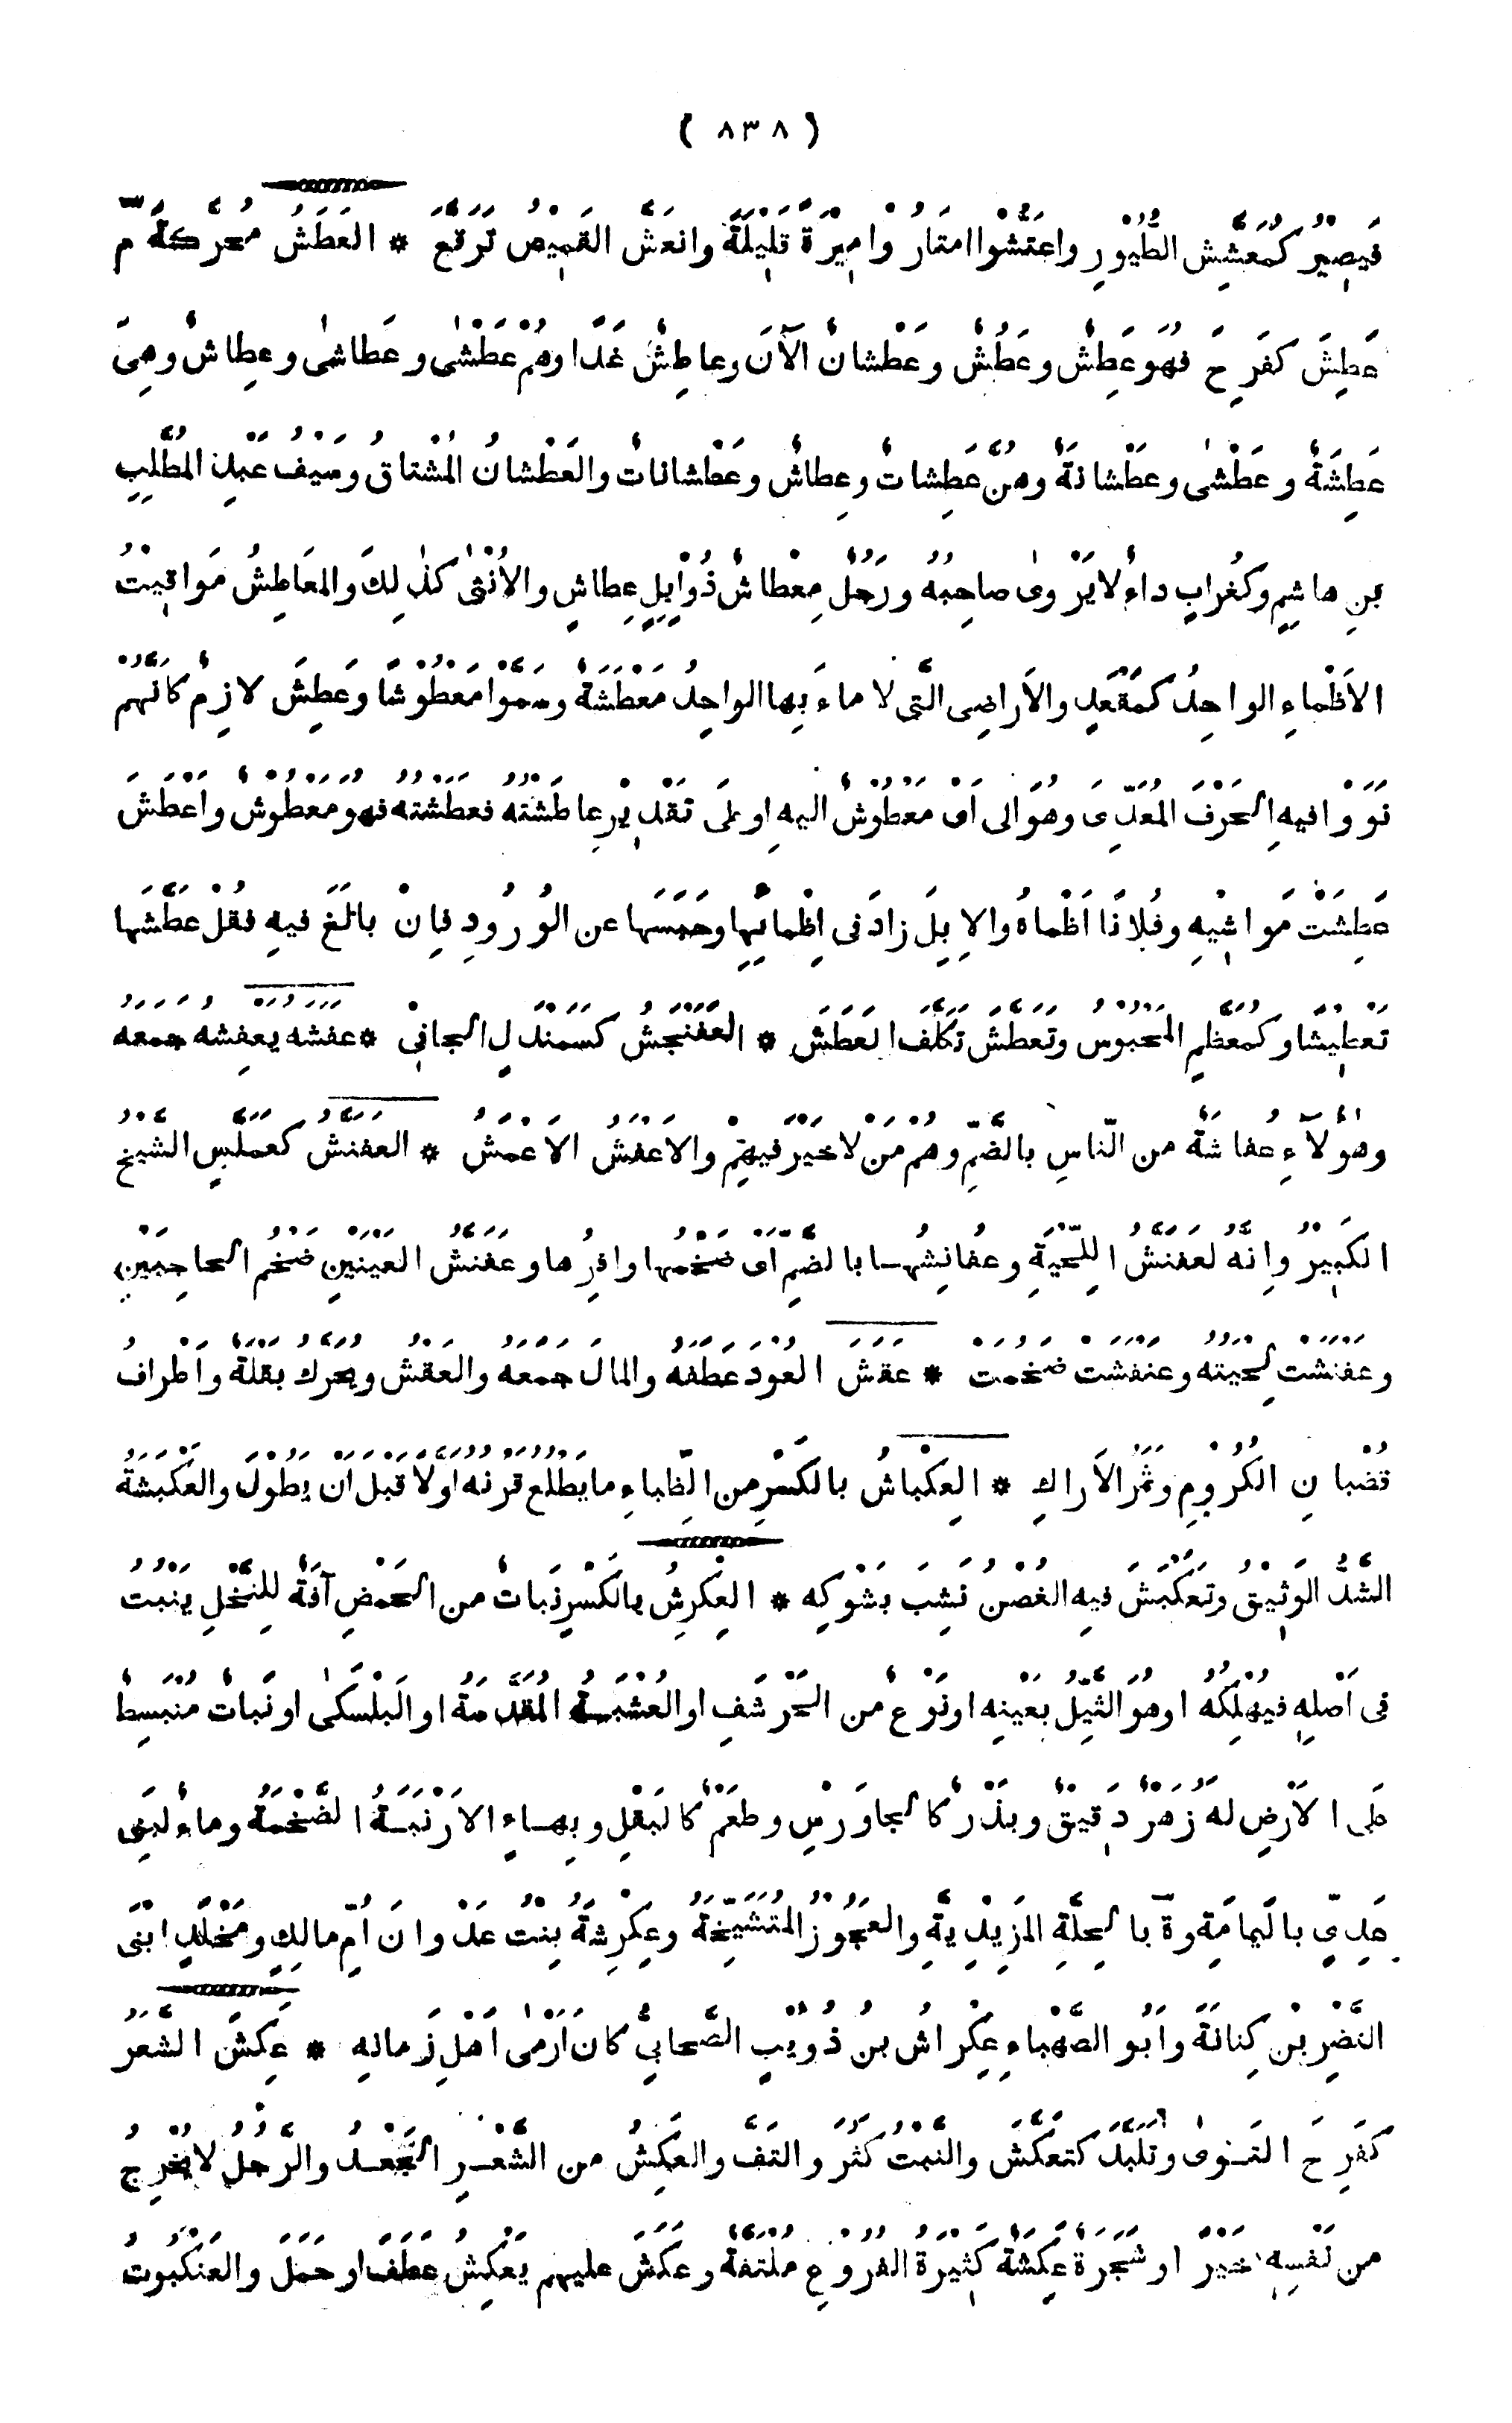 ( ٨٣٨ )
فيَصِيْرُ كمُعَشِّشِ الطُّيُوْرِ واعتَشُّوْا امتارُوْا مِيْرَةً قَلِيْلَةً وانعَشَّ القَمِيْصُ تَرَقَّعَ * العَطَشُ مُحَرَّكَةً م
عَطِشَ كفَرِحَ فهُوَ عَطِشٌ وعَطُشٌ وعَطْشانُ الآنَ وعاطِشٌ غَدًا وهُمْ عَطْشٰى وعَطاشٰى وعِطاشٌ وهِىَ
عَطِشَةٌ وعَطْشٰى وعَطْشانةٌ وهُنَّ عَطِشاتٌ وعِطاشٌ وعَطْشاناتٌ والعَطْشانُ المُشْتاقُ وسَيْفُ عَبْدِ المُطَّلِبِ
بنِ هاشِمٍ وكغُرابٍ داءٌ لا يَرْوٰى صاحِبُهُ ورَجُلٌ مِعْطاشٌ ذُوْ اِبِلٍ عِطاشٍ والاُنْثٰى كذٰلِكَ والمَعَاطِشُ مَواقِيْتُ
الاَظْماءِ الواحِدُ كمَقْعَدٍ والاَراضِى الَّتى لا ماءَ بِها الواحِدُ مَعْطَشَةٌ وسَمَّوْا مَعْطُوْشًا وعَطِشَ لازِمٌ كاَنَّهُمْ
نَوَوْا فيهِ الحَرْفَ المُعَدِّىَ وهُوَ الى اَىْ مَعْطُوْشٌ اليهِ او على تَقْدِيْرِ عاطَشْتُهُ فعَطَشْتُهُ فهو مَعْطُوْشٌ واَعْطَشَ
عَطِشَتْ مَواشِيْهِ وفُلانًا اَظْماهُ والاِبِلَ زادَ فى اِظْمائِها وحَبَسَها عن الوُرُوْدِ فاِنْ بالَغَ فيهِ فقُلْ عَطَّشَها
تَعْطِيْشًا وكمُعَظَّمٍ المَحْبُوْسُ وتَعَطَّشَ تَكَلَّفَ العَطَشَ * العَفَنْجَشُ كسَمَنْدَلٍ الجافِىْ * عفَشَهُ يعفِشُهُ جمَعَهُ
وهٰؤُلاۤءِ عُفاشَةٌ من النّاسِ بالضَّمِّ وهُمْ مَنْ لا خَيْرَ فيهِمْ والاَعفَشُ الاَعمَشُ * العفَنَّشُ كعَمَلَّسٍ الشَّيْخُ
الكَبِيْرُ واِنَّهُ لعَفَنَّشُ اللِّحْيَةِ وعُفانِشُها بالضَّمِّ اَىْ ضَخْمُها وافِرُها وعَفَنَّشُ العَيْنَيْنِ ضَخْمُ الحاجِبَيْنِ
وعَفْنَشَتْ لِحْيَتُهُ وعَنْفَشَتْ ضَخُمَتْ * عَقَشَ العُوْدَ عَطَفَهُ والمالَ جَمَعَهُ والعَقْشُ ويُحَرَّكُ بَقْلَةٌ واَطْرافُ
قُضْبانِ الكُرُوْمِ وثَمَرُ الاَراكِ * العِكْباشُ بالكَسْرِ من الظِّباءِ ما يَطْلُعُ قَرْنُهُ اوَّلاً قَبْلَ اَنْ يَطُوْلَ والعَكْبَشَةُ
الشَّدُّ الوَثِيْقُ وتَعَكْبَشَ فيهِ الغُصْنُ نَشِبَ بشَوْكِهِ * العِكْرِشُ بالكَسْرِ نَباتٌ من الحَمْضِ آفَةٌ للنَّخْلِ يَنْبُتُ
فى اَصْلِهِ فيُهْلِكُهُ اوهُوَ الثَّيِّلُ بعَيْنِهِ او نَوْعٌ من الحَرْشَفِ او العُشْبَةُ المُقَدَّسَةُ او البَلْسَكٰى او نَباتٌ مُنْبَسِطٌ
على الاَرْضِ لهُ زَهْرٌ دَقِيْقٌ وبَذْرٌ كالجاوَرْسِ وطعْمٌ كالبَقْلِ وبِهاءٍ الاَرْنَبَةُ الضَّخْمَةُ وماءٌ لبَنى
عَدِىٍّ باليَمامَةِ وة بالحِلَّةِ المَزْيَدِيَّةِ والعَجُوْزُ المُتَشَيِّخَةُ وعِكْرِشَةُ بِنْتُ عَدْوانَ اُمِّ مالِكٍ ومَخْلَدٍ ابْنَىِ
النَّضْرِ بْنِ كِنانَةَ واَبُو الصَّهْباءِ عِكْراشُ بنُ ذُوَيْبٍ الصَّحابىُّ كانَ اَرْمٰى اَهْلِ زَمانِهِ * عكِشَ الشَّعَرُ
كفَرِحَ التَوٰى وتَلَبَّدَ كتعَكَّشَ والنَّبْتُ كثُرَ والتَفَّ والعَكِشُ من الشَّعْرِ الجَعْدُ والرَّجُلُ لا يُخْرِجُ
من نَفْسِهِ خَيْرًا وشَجَرَةٌ عَكِشَةٌ كَثِيْرَةُ الفُرُوْعِ مُلْتَفَّةٌ وعكَشَ عليهم يَعْكِشُ عَطَفَ او حَمَلَ والعَنْكَبُوتُ